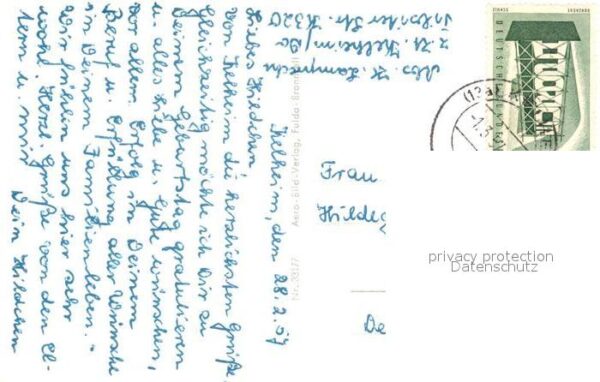 Kelheim, den 28.2.57
Liebes Hildchen!
Von Kelheim die herzlichsten Grüße.
Gleichzeitig möchte ich Dir zu
Deinem Geburtstag gratulieren
u. alles Liebe u. Gute wünschen,
vor allem Erfolg in Deinem
Beruf u. Erfüllung aller Wünsche
in Deinem Familienleben. -
Wir fühlen uns hier sehr
wohl. Herzl. Grüße von den El-
tern u. mir
Dein Hildchen
Abs. K.
z. Zt. Kelheim/Do
Str.
Aero-Bild-Verlag, Fulda-Bronnzell
Nr.
Frau
Hildeg
De
DEUTSCHE BUNDESPOST
EUROPA
privacy protection
Datenschutz